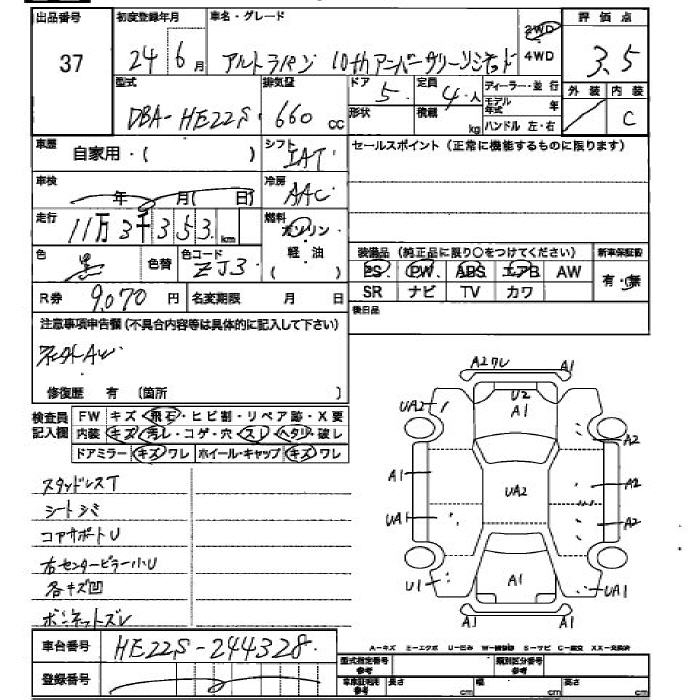 出品番号 初度登録年月 車名・グレード 2WD 評価点
37 24 6月 アルトラパン 10thアニバーサリーリミテッド 4WD 3.5
型式 排気量 ドア 5 定員 4人 ディーラー・並行 外装 内装
DBA-HE22S 660cc 形状 積載 kg モデル年式 年 C
ハンドル 左・右
車歴 自家用・( ) シフト IAT セールスポイント(正常に機能するものに限ります)
車検 年 月( 日) 冷房 AAC
走行 11万3千353km 燃料 ガソリン
軽・油 装備品(純正品に限り○をつけてください) 新車保証書
色 黒 色替 色コード ZJ3 PS PW ABS エアB AW 有・無
SR ナビ TV カワ
R券 9,070円 名変期限 月 日 後日品
注意事項申告欄(不具合内容等は具体的に記入して下さい)
修復歴 有 (箇所 )
検査員 FW キズ・飛石・ヒビ割・リペア跡・X要
記入欄 内装 キズ・汚レ・コゲ・穴・スレ・ヘタリ・破レ
ドアミラー キズ・ワレ ホイール・キャップ キズ・ワレ
スタッドレスT
シートシミ
コアサポートU
右センターピラー小U
各キズ凹
ボンネットズレ
A2ワレ A1
UA2 U2 A1 A2
A1 UA2 A2
UA1 A2
U1 A1 UA1
A1 A1
車台番号 HE22S-244328
登録番号
A−キズ E−エクボ U−凹み W−補修跡 S−サビ C−腐交 XX−交換済
型式指定番号 参考 類別区分番号 参考
車庫証明用 参考 長さ cm 幅 cm 高さ cm